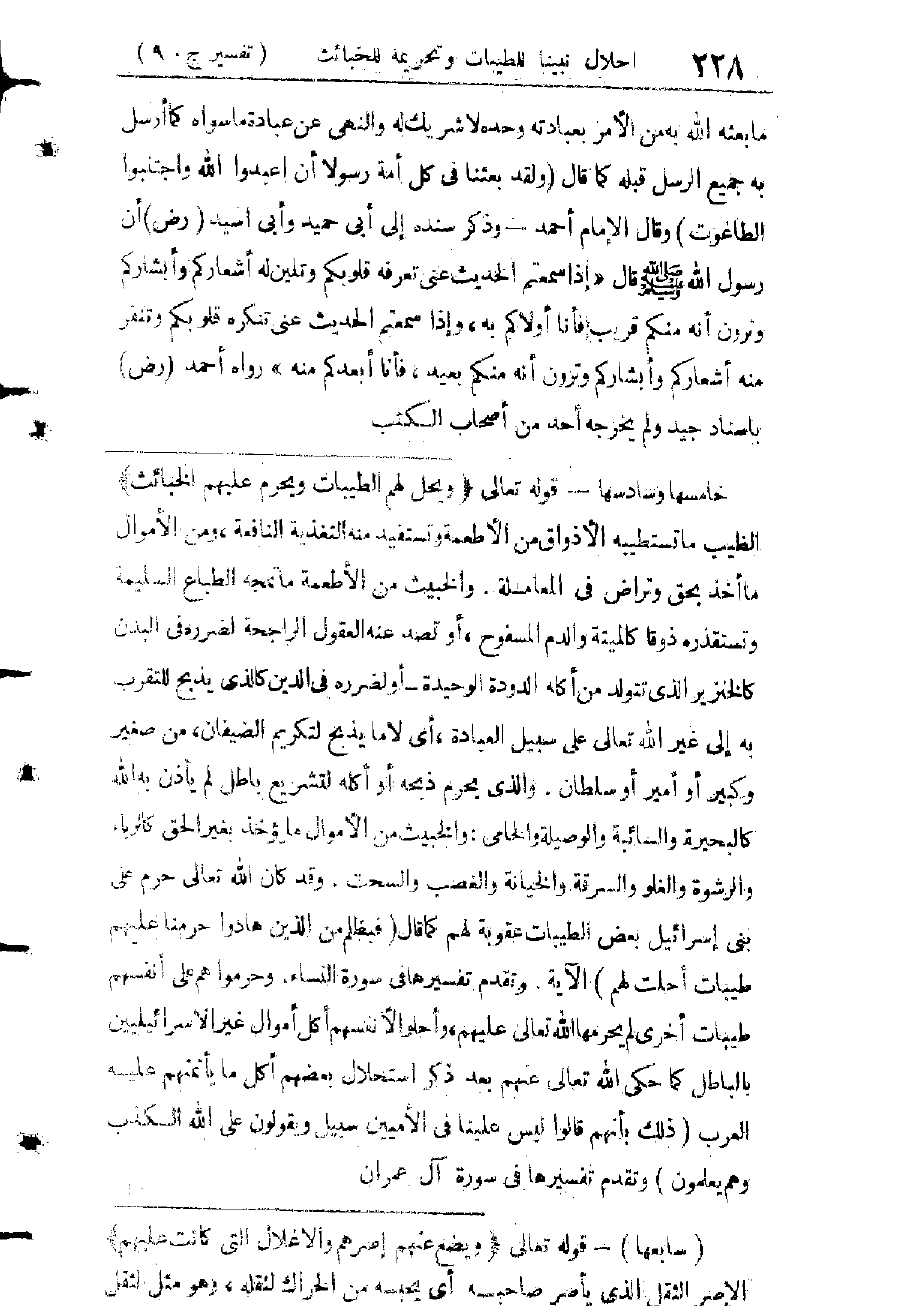 ٢٢٨ احلال نبينا للطيبات وتحريمه للخبائث (تفسير ج ٩٠)
ما بعثه الله به من الأمر بعبادته وحده لا شريك له والنهي عن عبادة ما سواه كما أرسل
به جميع الرسل قبله كما قال (ولقد بعثنا فى كل أمة رسولا أن اعبدوا الله واجتنبوا
الطاغوت) وقال الإمام أحمد — وذكر سنده إلى أبى حميد وأبى أسيد (رض) أن
رسول الله ﷺ قال « إذا سمعتم الحديث عنى تعرفه قلوبكم وتلين له أشعاركم وأبشاركم
وترون أنه منكم قريب فأنا أولاكم به ، وإذا سمعتم الحديث عنى تنكره قلوبكم وتنفر
منه أشعاركم وأبشاركم وترون أنه منكم بعيد ، فأنا أبعدكم منه » رواه أحمد (رض)
باسناد جيد ولم يخرجه أحد من أصحاب الكتب
خامسها وسادسها — قوله تعالى ﴿ ويحل لهم الطيبات ويحرم عليهم الخبائث﴾
الطيب ما تستطيبه الأذواق من الأطعمة وتستفيد منه التغذية النافعة ، ومن الأموال
ما أخذ بحق وتراض فى المعاملة . والخبيث من الأطعمة ما تمجه الطباع السليمة
وتستقذره ذوقا كالميتة والدم المسفوح ، أو تصد عنه العقول الراجحة لضرره فى البدن
كالخنزير الذى تتولد من أكله الدودة الوحيدة — أو لضرره فى الدين كالذى يذبح للتقرب
به إلى غير الله تعالى على سبيل العبادة ، أى لا ما يذبح لتكريم الضيفان ، من صغير
وكبير أو أمير أو سلطان . والذى يحرم ذبحه أو أكله لتشريع باطل لم يأذن به الله
كالبحيرة والسائبة والوصيلة والحامى : والخبيث من الأموال ما يؤخذ بغير الحق كالرباء
والرشوة والغلو والسرقة والخيانة والغصب والسحت . وقد كان الله تعالى حرم على
بنى إسرائيل بعض الطيبات عقوبة لهم كما قال ( فبظلم من الذين هادوا حرمنا عليهم
طيبات أحلت لهم ) الآية . وتقدم تفسيرها فى سورة النساء . وحرموا هم على أنفسهم
طيبات أخرى لم يحرمها الله تعالى عليهم، وأحلوا لأنفسهم أكل أموال غير الاسرائيليين
بالباطل كما حكى الله تعالى عنهم بعد ذكر استحلال بعضهم أكل ما يأتمنهم عليه
العرب ( ذلك بأنهم قالوا ليس علينا فى الأميين سبيل ويقولون على الله الكذب
وهم يعلمون ) وتقدم تفسيرها فى سورة آل عمران
( سابعها ) — قوله تعالى ﴿ ويضع عنهم إصرهم والاغلال التى كانت عليهم﴾
الإصر الثقل الذى يأصر صاحبه أى يحبسه من الحراك لثقله ، وهو مثل لثقل